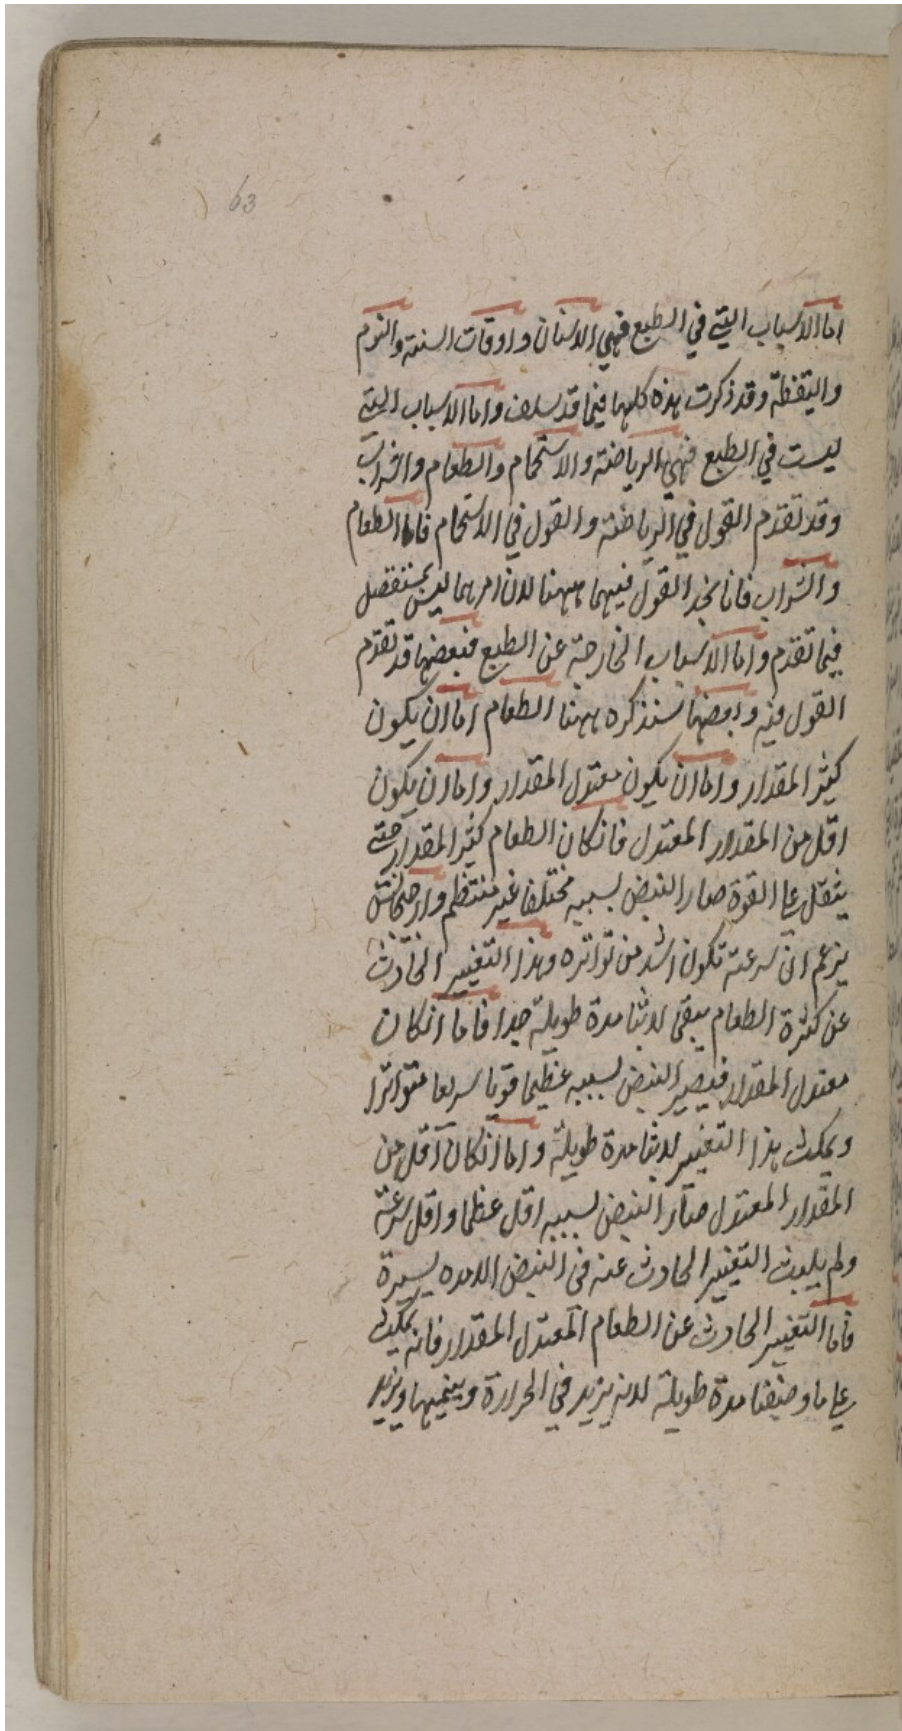 63
اما الاسباب التي في الطبع فهي الاسنان واوقات السنة والنوم
واليقظة وقد ذكرت هذه كلها فيما قد سلف واما الاسباب التي
ليست في الطبع فهي الرياضة والاستحمام والطعام والشراب
وقد تقدم القول في الرياضة والقول في الاستحمام فاما الطعام
والشراب فانا نجد القول فيهما ههنا لان امرهما ليس بمنفصل
فيما تقدم واما الاسباب الخارجة عن الطبع فبعضها قد تقدم
القول فيه وبعضها سنذكره ههنا الطعام اما ان يكون
كثير المقدار واما ان يكون معتدل المقدار واما ان يكون
اقل من المقدار المعتدل فان كان الطعام كثير المقدار حتى
يثقل على القوة صار النبض بسببه مختلفا غير منتظم وارخيجانس
يزعم ان سرعته تكون اشد من تواتره وهذا التغيير الحادث
عن كثرة الطعام يبقى لابثا مدة طويلة جدا فاما ان كان
معتدل المقدار فيصير النبض بسببه عظيما قويا سريعا متواترا
ويمكث هذا التغيير لابثا مدة طويلة واما ان كان اقل من
المقدار المعتدل صار النبض بسببه اقل عظما واقل سرعة
ولم يلبث التغيير الحادث عنه في النبض الا مده يسيرة
فاما التغيير الحادث عن الطعام المعتدل المقدار فانه يمكث
على ما وصفنا مدة طويلة لانه يزيد في الحرارة وينميها ويزيد